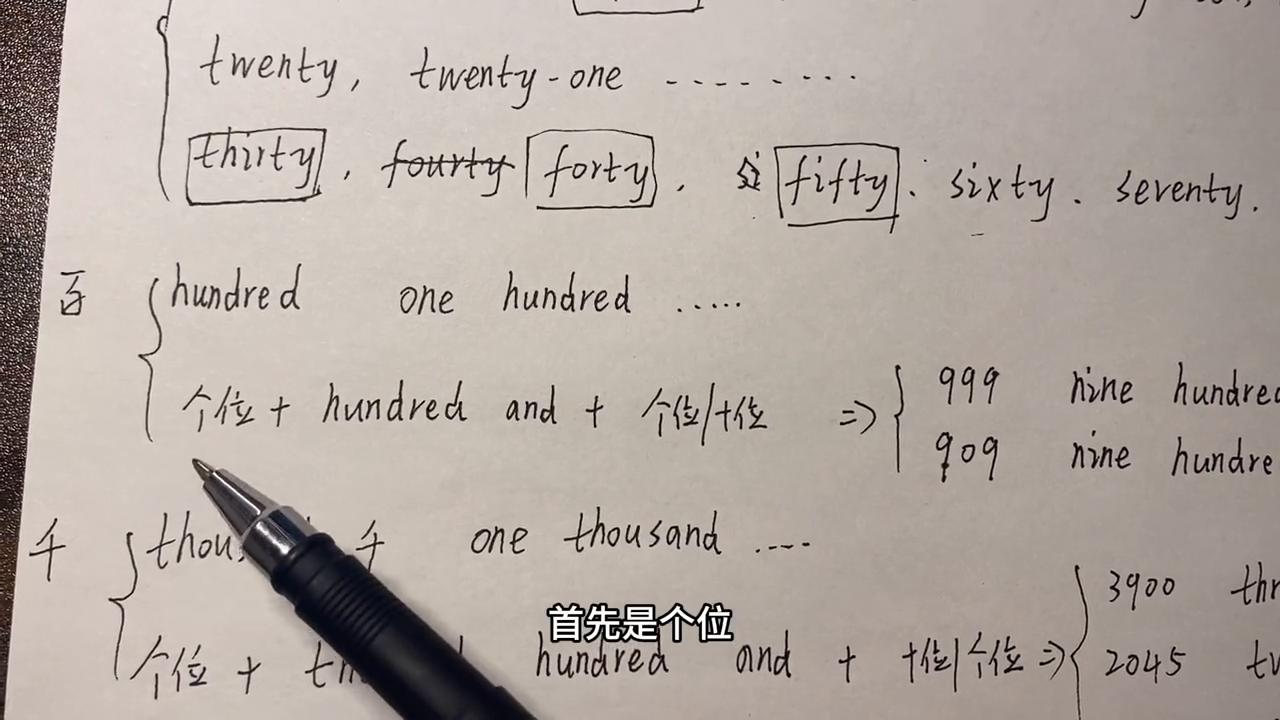 twenty, twenty-one ---------
thirty, fourty forty, fifty. sixty. seventy.
百 hundred one hundred .....
个位 + hundred and + 个位/十位 => 999 nine hundred
909 nine hundre
千 千 one thousand ....
个位 + hundred and + 十位/个位 => 3900
2045
首先是个位